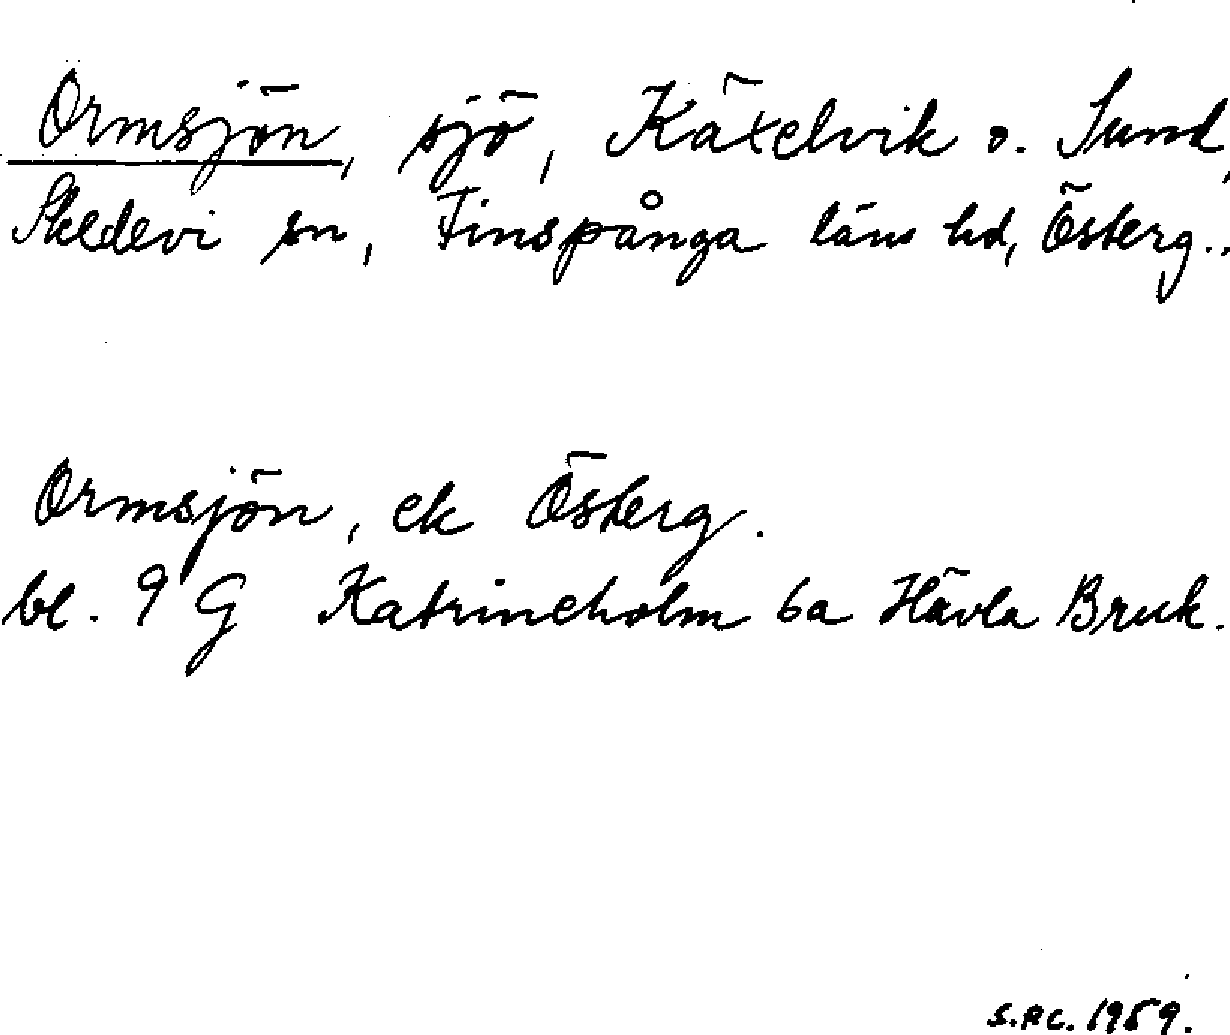 Ormsjön, sjö, Käxelvik o. Sund,
Skedevi sn, Finspånga läns hd, Österg.,
Ormsjön, ek Österg.
bl. 9 G Katrineholm 6a Hävla Bruk.
1959.